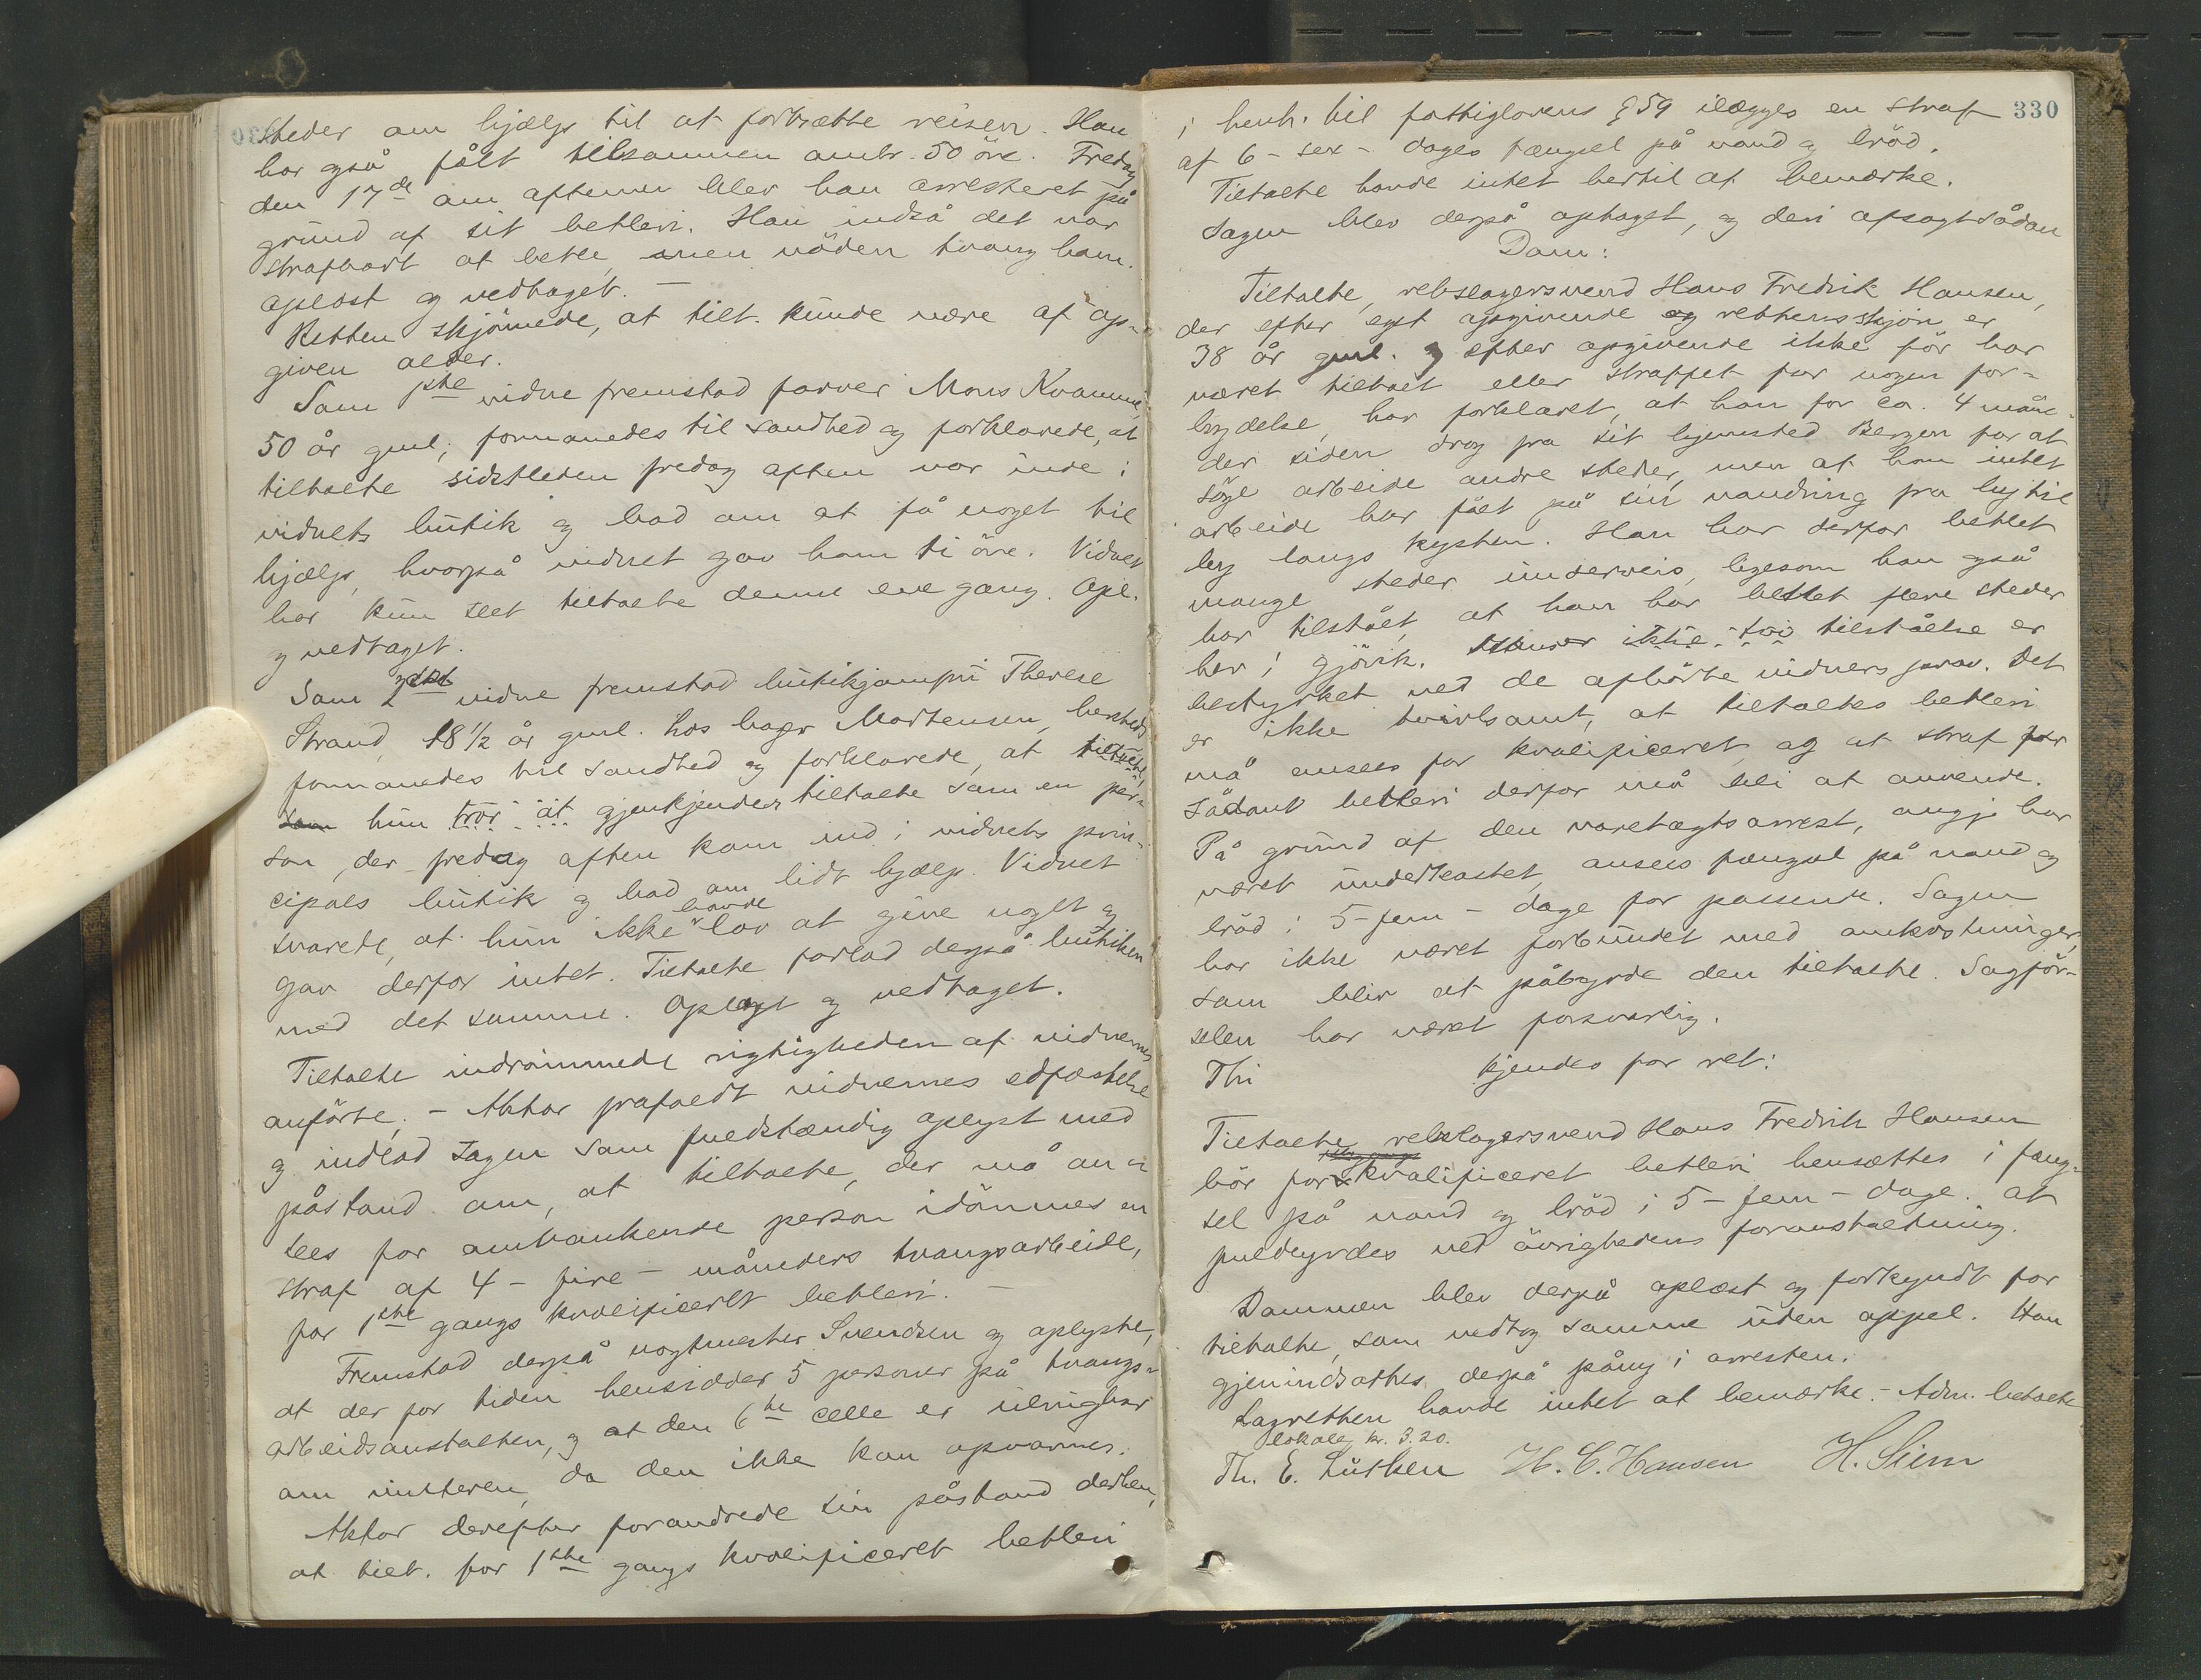 steder om hjælp til at fortsætte reisen. Han
har også fått tilsammen omtr. 50 öre. Fredag
den 17de om aftenen blev han arresteret på
grund af sit betleri. Han indså det var
strafbart at betle, men nöden tvang ham.
Oplæst og vedtaget. —
Retten skjönnede, at tilt. kunde være af op-
given alder.
Som 1ste vidne fremstod farver Mons Kvamme,
50 år gml., formanedes til sandhed og forklarede, at
tiltalte sidstleden fredag aften var inde i
vidnets butik og bad om at få noget til
hjælp, hvorpå vidnet gav ham ti öre. Vidnet
har kun seet tiltalte denne ene gang. Opl.
og vedtaget.
Som 2det vidne fremstod butikjomfru Therese
Strand, 18 1/2 år gml. hos bager Mortensen, hersteds,
formanedes til sandhed og forklarede, at tiltalte,
som hun tror at gjenkjender tiltalte som en per-
son, der fredag aften kom ind i vidnets prin-
cipals butik og bad om lidt hjælp. Vidnet
svarede, at hun ikke havde lov at give noget og
gav derfor intet. Tiltalte forlod derpå butiken
med det samme. Oplæst og vedtaget.
Tiltalte indrömmede rigtigheden af vidnernes
anförte. – Aktor frafaldt vidnernes edfæstelse
og indlod sagen som fuldstændig oplyst med
påstand om, at tiltalte, der må an-
sees for omvankende person idömmes en
straf af 4 – fire – måneders tvangsarbeide,
for 1ste gangs kvalificeret betleri. —
Fremstod derpå vogtmester Svendsen og oplyste,
at der for tiden hensidder 5 personer på tvangs-
arbeidsanstalten, og at den 6te celle er ubrugbar
om vinteren, da den ikke kan opvarmes.
Aktor derefter forandrede sin påstand derhen,
at tilt. for 1ste gangs kvalificeret betleri
330
i henh. til fattiglovens § 59 ilægges en straf
af 6 – sex – dages fængsel på vand og bröd.
Tiltalte havde intet hertil at bemærke.
Sagen blev derpå optaget, og deri afsagt sådan
Dom:
Tiltalte, rebslagersvend Hans Fredrik Hansen,
der efter eget opgivende og rettens skjön er
38 år gml. og efter opgivende ikke för har
været tiltalt eller straffet for nogen for-
brydelse, har forklaret, at han for ca. 4 måne-
der siden drog fra sit hjemsted Bergen for at
söge arbeide andre steder, men at han intet
arbeide har fået på sin vandring fra by til
by langs kysten. Han har derfor betlet
mange steder underveis, ligesom han også
har tilstået, at han har betlet flere steder
her i Gjövik. Hans ikke tvi tilståelse er
bestyrket ved de afhörte vidners prov. Det
er ikke tvivlsomt, at tiltaltes betleri
må ansees for kvalificeret og at straf for
sådant betleri derfor må bli at anvende.
På grund af den varetægtsarrest, angj. har
været underkastet, ansees fængsel på vand og
bröd i 5 – fem – dage for passende. Sagen
har ikke været forbundet med omkostninger,
som blir at påbyrde den tiltalte. Sagför-
selen har været forsvarlig.
Thi kjendes for ret:
Tiltalte, rebslagersvend Hans Fredrik Hansen
bör for kvalificeret betleri hensættes i fæng-
sel på vand og bröd i 5 – fem – dage. At
fuldbyrdes ved övrighedens foranstaltning.
Dommen blev derpå oplæst og forkyndt for
tiltalte, som vedtog samme uden appel. Han
gjenindsattes derpå påny i arresten.
Lagretten havde intet at bemærke. – Adm. betalte
lokale kr. 3.20.
Th. E. Lütken H. C. Hansen H. Siem